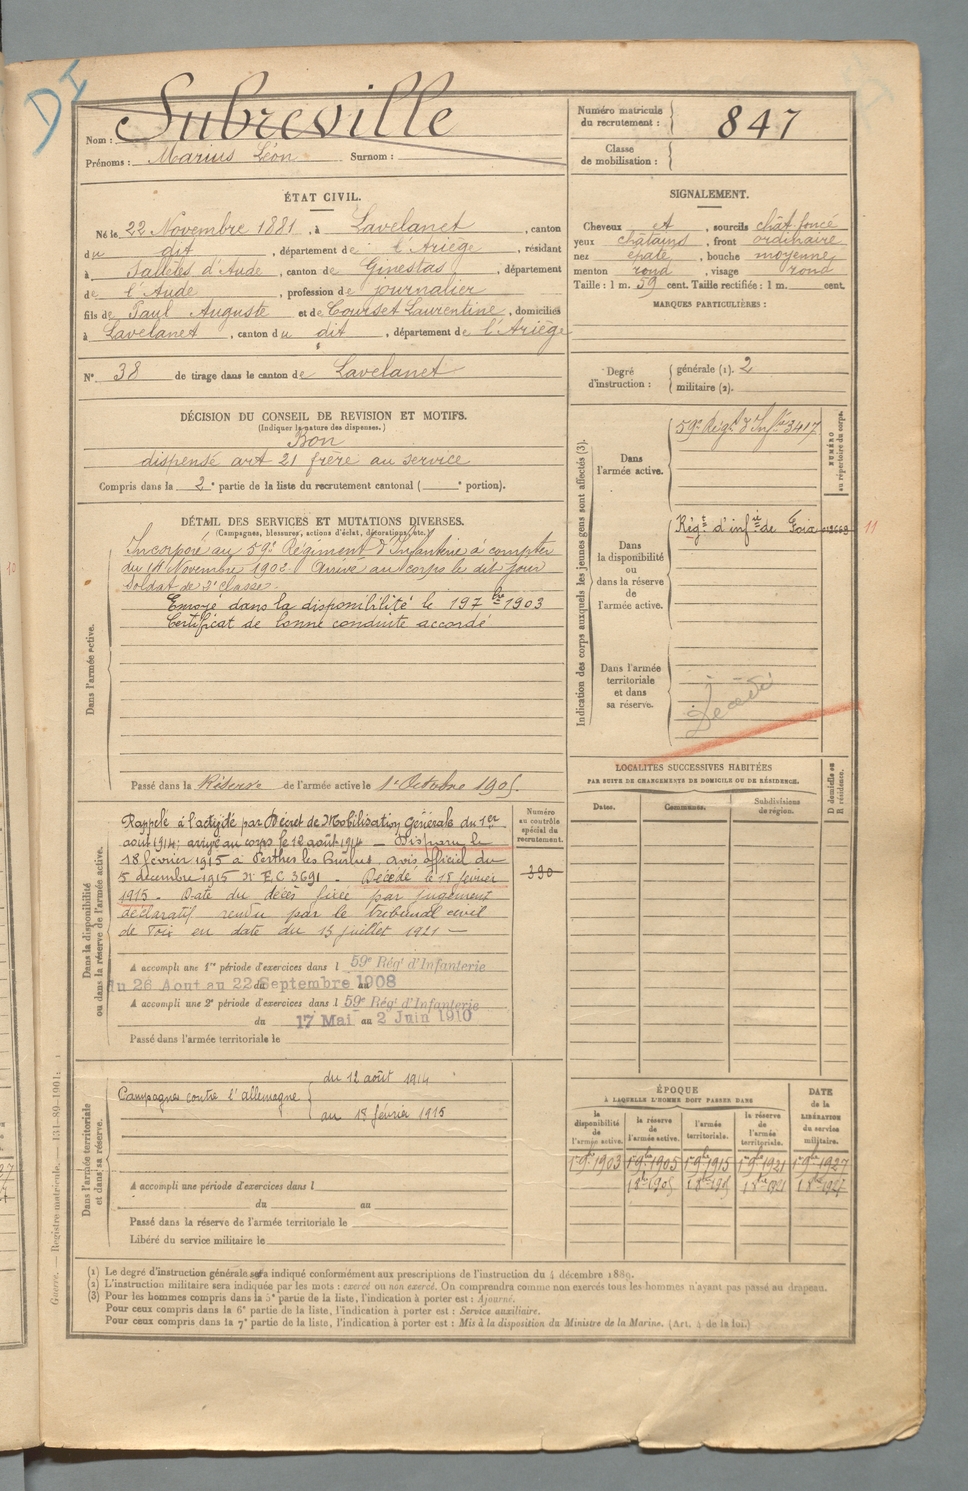 DI
Nom : Subreville
Prénoms : Marius Léon Surnom :
Numéro matricule du recrutement : 847
Classe de mobilisation :
ÉTAT CIVIL.
Né le 22 Novembre 1881, à Lavelanet, canton
du dit, département de l'Ariège, résidant
à Sallèles d'Aude, canton de Ginestas, département
de l'Aude, profession de journalier
fils de Paul Auguste et de Courset Laurentine, domiciliés
à Lavelanet, canton du dit, département de l'Ariège
N° 38 de tirage dans le canton de Lavelanet
SIGNALEMENT.
Cheveux et, sourcils chât foncé
yeux châtains, front ordinaire
nez épaté, bouche moyenne
menton rond, visage rond
Taille : 1 m. 59 cent. Taille rectifiée : 1 m. cent.
MARQUES PARTICULIÈRES :
Degré d'instruction : générale (1). 2
militaire (2).
DÉCISION DU CONSEIL DE REVISION ET MOTIFS.
(Indiquer la nature des dispenses.)
Bon
dispensé art 21 frère au service
Compris dans la 2e partie de la liste du recrutement cantonal ( e portion).
DÉTAIL DES SERVICES ET MUTATIONS DIVERSES.
(Campagnes, blessures, actions d'éclat, décorations, etc.)
Dans l'armée active.
Incorporé au 59e Régiment d'Infanterie à compter
du 14 Novembre 1902. Arrivé au corps le dit jour
Soldat de 2e classe.
Envoyé dans la disponibilité le 19 7bre 1903
Certificat de bonne conduite accordé
Passé dans la Réserve de l'armée active le 1er Octobre 1905.
Indication des corps auxquels les jeunes gens sont affectés (3).
NUMÉRO au répertoire du corps.
Dans l'armée active.
59e Régt d'Infie 3417
Dans la disponibilité ou dans la réserve de l'armée active.
Régt d'infie de Foix 11
Dans l'armée territoriale et dans sa réserve.
Décédé
10
Dans la disponibilité ou dans la réserve de l'armée active.
Rappelé à l'activité par Décret de Mobilisation Générale du 1er
août 1914; arrivé au corps le 12 août 1914 — Disparu le
18 février 1915 à Perthes les Hurlus, avis officiel du
5 décembre 1915 N° E.C 3691 - Décédé le 18 février
1915 - Date du décès fixée par jugement
déclaratif rendu par le tribunal civil
de Foix en date du 13 juillet 1921 —
Numéro au contrôle spécial du recrutement.
390
A accompli une 1re période d'exercices dans l 59e Rég' d'Infanterie
du 26 Aout au 22 Septembre 1908
A accompli une 2e période d'exercices dans l 59e Rég' d'Infanterie
du 17 Mai au 2 Juin 1910
Passé dans l'armée territoriale le
LOCALITÉS SUCCESSIVES HABITÉES
PAR SUITE DE CHANGEMENTS DE DOMICILE OU DE RÉSIDENCE.
Dates. Communes. Subdivisions de région. D domicile ou R résidence.
Dans l'armée territoriale et dans sa réserve.
Campagnes contre l'allemagne
du 12 août 1914
au 18 février 1915
A accompli une période d'exercices dans l
du au
Passé dans la réserve de l'armée territoriale le
Libéré du service militaire le
ÉPOQUE
À LAQUELLE L'HOMME DOIT PASSER DANS
la disponibilité de l'armée active. la réserve de l'armée active. l'armée territoriale. la réserve de l'armée territoriale.
DATE de la LIBÉRATION du service militaire.
1er 9bre 1903 1er 9bre 1905 1er 9bre 1915 1er 9bre 1921 1er 9bre 1927
Gouvre. — Registre matricule. — 131-89-1901.
(1) Le degré d'instruction générale sera indiqué conformément aux prescriptions de l'instruction du 4 décembre 1889.
(2) L'instruction militaire sera indiquée par les mots : exercé ou non exercé. On comprendra comme non exercés tous les hommes n'ayant pas passé au drapeau.
(3) Pour les hommes compris dans la 5e partie de la liste, l'indication à porter est : Ajourné.
Pour ceux compris dans la 6e partie de la liste, l'indication à porter est : Service auxiliaire.
Pour ceux compris dans la 7e partie de la liste, l'indication à porter est : Mis à la disposition du Ministre de la Marine. (Art. 4 de la loi.)